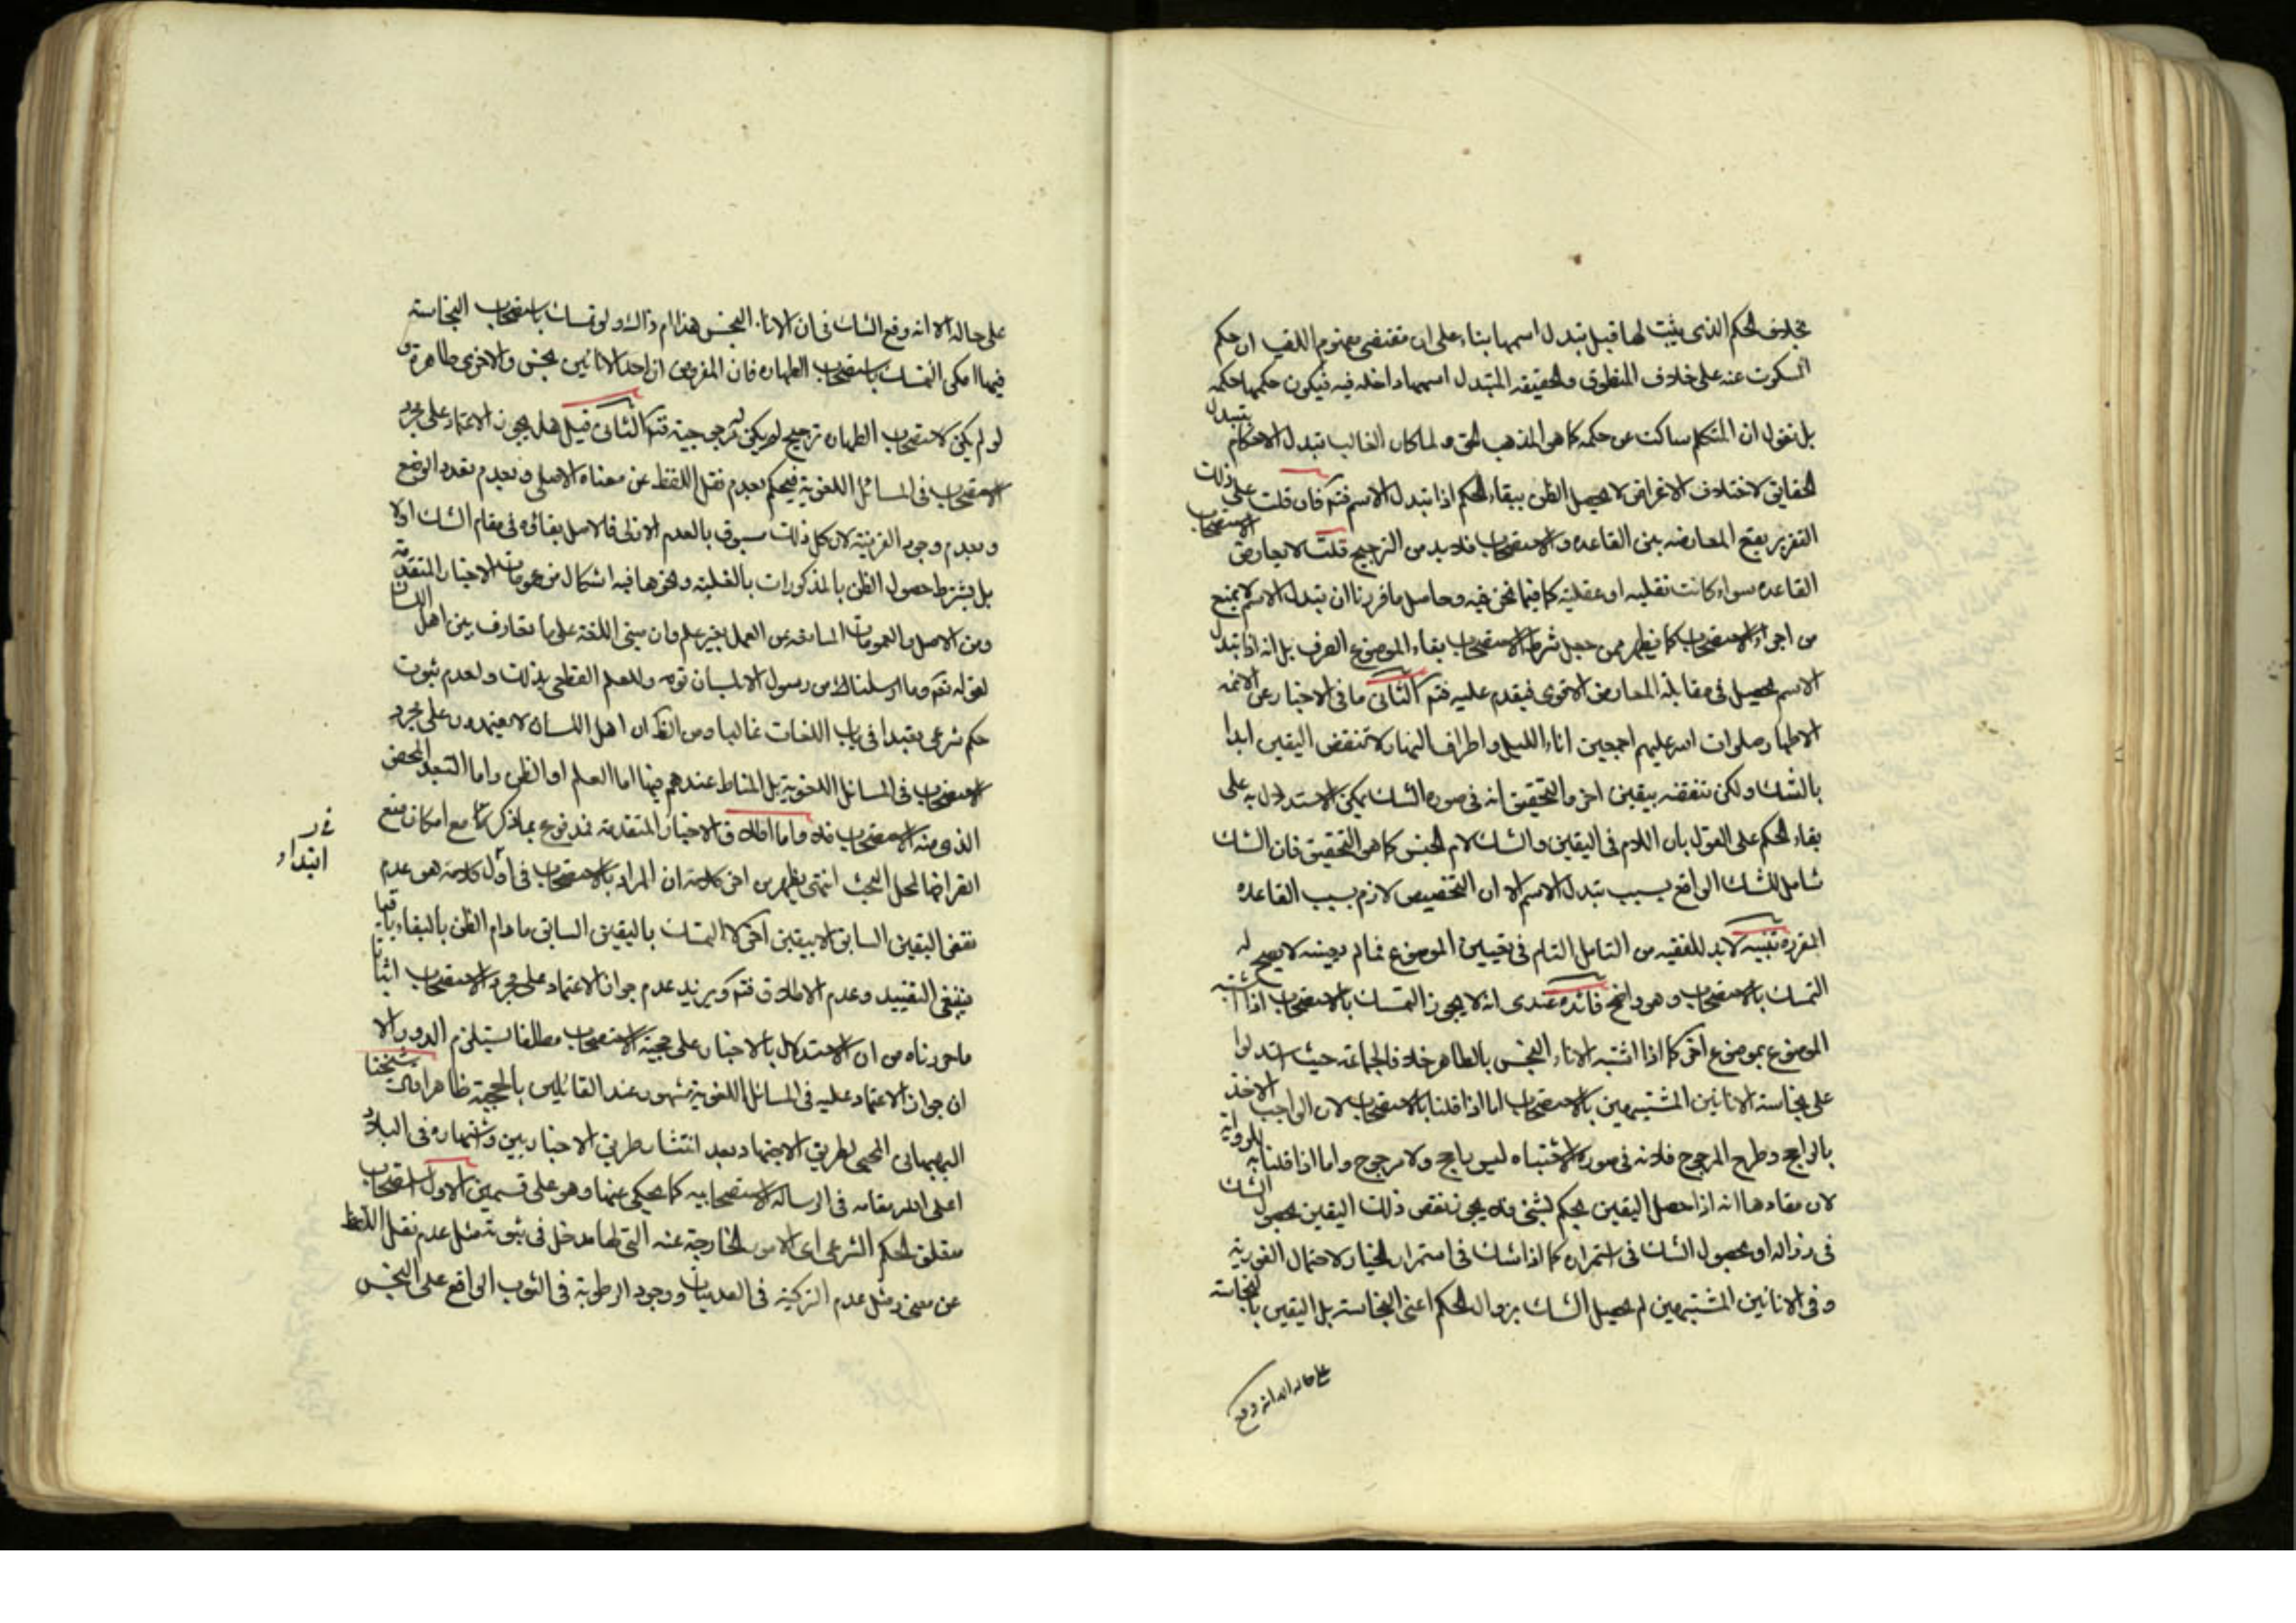 بخلاف الحكم الذى يثبت لها قبل تبدل اسمها بناء على ان مقتضى مفهوم اللقب ان حكم
المسكوت عنه على خلاف المنطوق والحقيقة المتبدل اسمها داخله فيه فيكون حكمها حكمه
بل نقول ان المتكلم ساكت عن حكمه كما هو المذهب الحق ولما كان الغالب تبدل الاحكام بتبدل
الحقايق لاختلاف الاغراض لا يحصل الظن ببقاء الحكم اذا تبدل الاسم فتم فان قلت على ذلك
التقرير يقع المعارضه بين القاعده والاستصحاب فلا بد من الترجيح قلت لا يعارض الاستصحاب
القاعده سواء كانت نقليه او عقلية كما فيما نحن فيه وحاصل ما قررنا ان تبدل الاسم لا يمنع
من اجراء الاستصحاب كما يظهر ممن جعل شرط الاستصحاب بقاء الموضوع العرفى بل انه اذا تبدل
الاسم يحصل فى مقابلة المعارض الاقوى فيقدم عليه فتم الثانى ما فى الاخبار عن الائمه
الاطهار صلوات الله عليهم اجمعين اناء الليل واطراف النهار لا تنقض اليقين ابدا
بالشك ولكن تنقضه بيقين اخر والتحقيق انه فى صورة الشك يمكن الاستدلال به على
بقاء الحكم على القول بان اللام فى اليقين والشك لام الجنس كما هو التحقيق فان الشك
شامل للشك الواقع بسبب تبدل الاسم الا ان التخصيص لازم بسبب القاعده
المقرره تنبيه لا بد للفقيه من التامل التام فى تعيين الموضوع فما لم يعينه لا يصح له
التمسك بالاستصحاب وهو واضح فائده عندى انه لا يجوز التمسك بالاستصحاب اذا اشتبه
الموضوع بموضوع اخر كما اذا اشتبه الاناء النجس بالطاهر خلافا لجماعة حيث استدلوا
على نجاسة الانائين المشتبهين بالاستصحاب اما اذا قلنا بالاستصحاب لان الواجب الاخذ
بالراجح وطرح المرجوح فلانه فى صورة الاشتباه ليس راجح ولا مرجوح واما اذا قلنا به للرواية
لان مفادها انه اذا حصل اليقين بحكم لشئ فلا يجوز نقض ذلك اليقين بحصول الشك
فى زواله او بحصول الشك فى استمراره كما اذا شك فى استمرار الخيار لاحتمال الفورية
وفى الانائين المشتبهين لم يحصل الشك بزوال الحكم اعنى النجاسته بل اليقين بالنجاسته
على حاله الا انه وقع
على حاله الا انه وقع الشك فى ان الاناء النجس هذا ام ذاك ولو تمسك باستصحاب النجاسته
فيهما امكن التمسك باستصحاب الطهاره فان المفروض ان احد الانائين نجس والاخرى طاهرة و
لو لم يكن لاستصحاب الطهاره ترجيح لم يكن له مرجوحية فتم الثانى قيل هل يجوز الاعتماد على مجرد
الاستصحاب فى المسائل اللغوية فيحكم بعدم نقل اللفظ عن معناه الاصلى وبعدم تعدد الوضع
وبعدم وجود القرينة لان كل ذلك مسبوق بالعدم الازلى فالاصل بقائه فى مقام الشك او لا
بل يشترط حصول الظن بالمذكورات بالغلبته ونحوها فيه اشكال من عمومات الاخبار المتقدمة
ومن الاصل والعمومات المانعه عن العمل بغير علم وان مبنى اللغة على ما تعارف بين اهل اللسان
لقوله تعم وما ارسلناك من رسول الا بلسان قومه وللعلم القطعى بذلك ولعدم ثبوت
حكم شرعى تعبدا فى باب اللغات غالبا ومن الظ ان اهل اللسان لا يعتمدون على مجرد
الاستصحاب فى المسائل اللغوية بل المناط عندهم فيها اما العلم او الظن واما التعبد المحض
الذى منه الاستصحاب فلا واما اطلاق الاخبار المتقدمة فمدفوع بما ذكر تا مع امكان منع
انصرافها لمحل البحث انتهى يظهر من اخر كلامه ان المراد بالاستصحاب فى اول كلامه هو عدم
فى ر
ابتداء
نقض اليقين السابق الا بيقين اخر لا التمسك باليقين السابق ما دام الظن بالبقاء باقيا
ينبغى التقييد وعدم الاطلاق فتم ويريد عدم جواز الاعتماد على مجرد الاستصحاب اثباتا
ما حررناه من ان الاستدلال بالاخبار على حجية الاستصحاب مطلقا يستلزم الدور الا
ان جواز الاعتماد عليه فى المسائل اللغوية مشهور عند القائلين بالحجية ظاهرا قال شيخنا
البهبهانى المحيى لطريق الاجتهاد بعد انتشار طريق الاخباريين واشتهاره فى البلاد
اعلى الله مقامه فى الرساله الاستصحابيه كما يحكى عنها وهو على قسمين الاول استصحاب
متعلق الحكم الشرعى اى الامور الخارجة عنه التى لها مدخل فى ثبوته مثل عدم نقل اللفظ
عن معنى ومثل عدم التزكية فى الجلد وجود الرطوبة فى الثوب الواقع على النجس